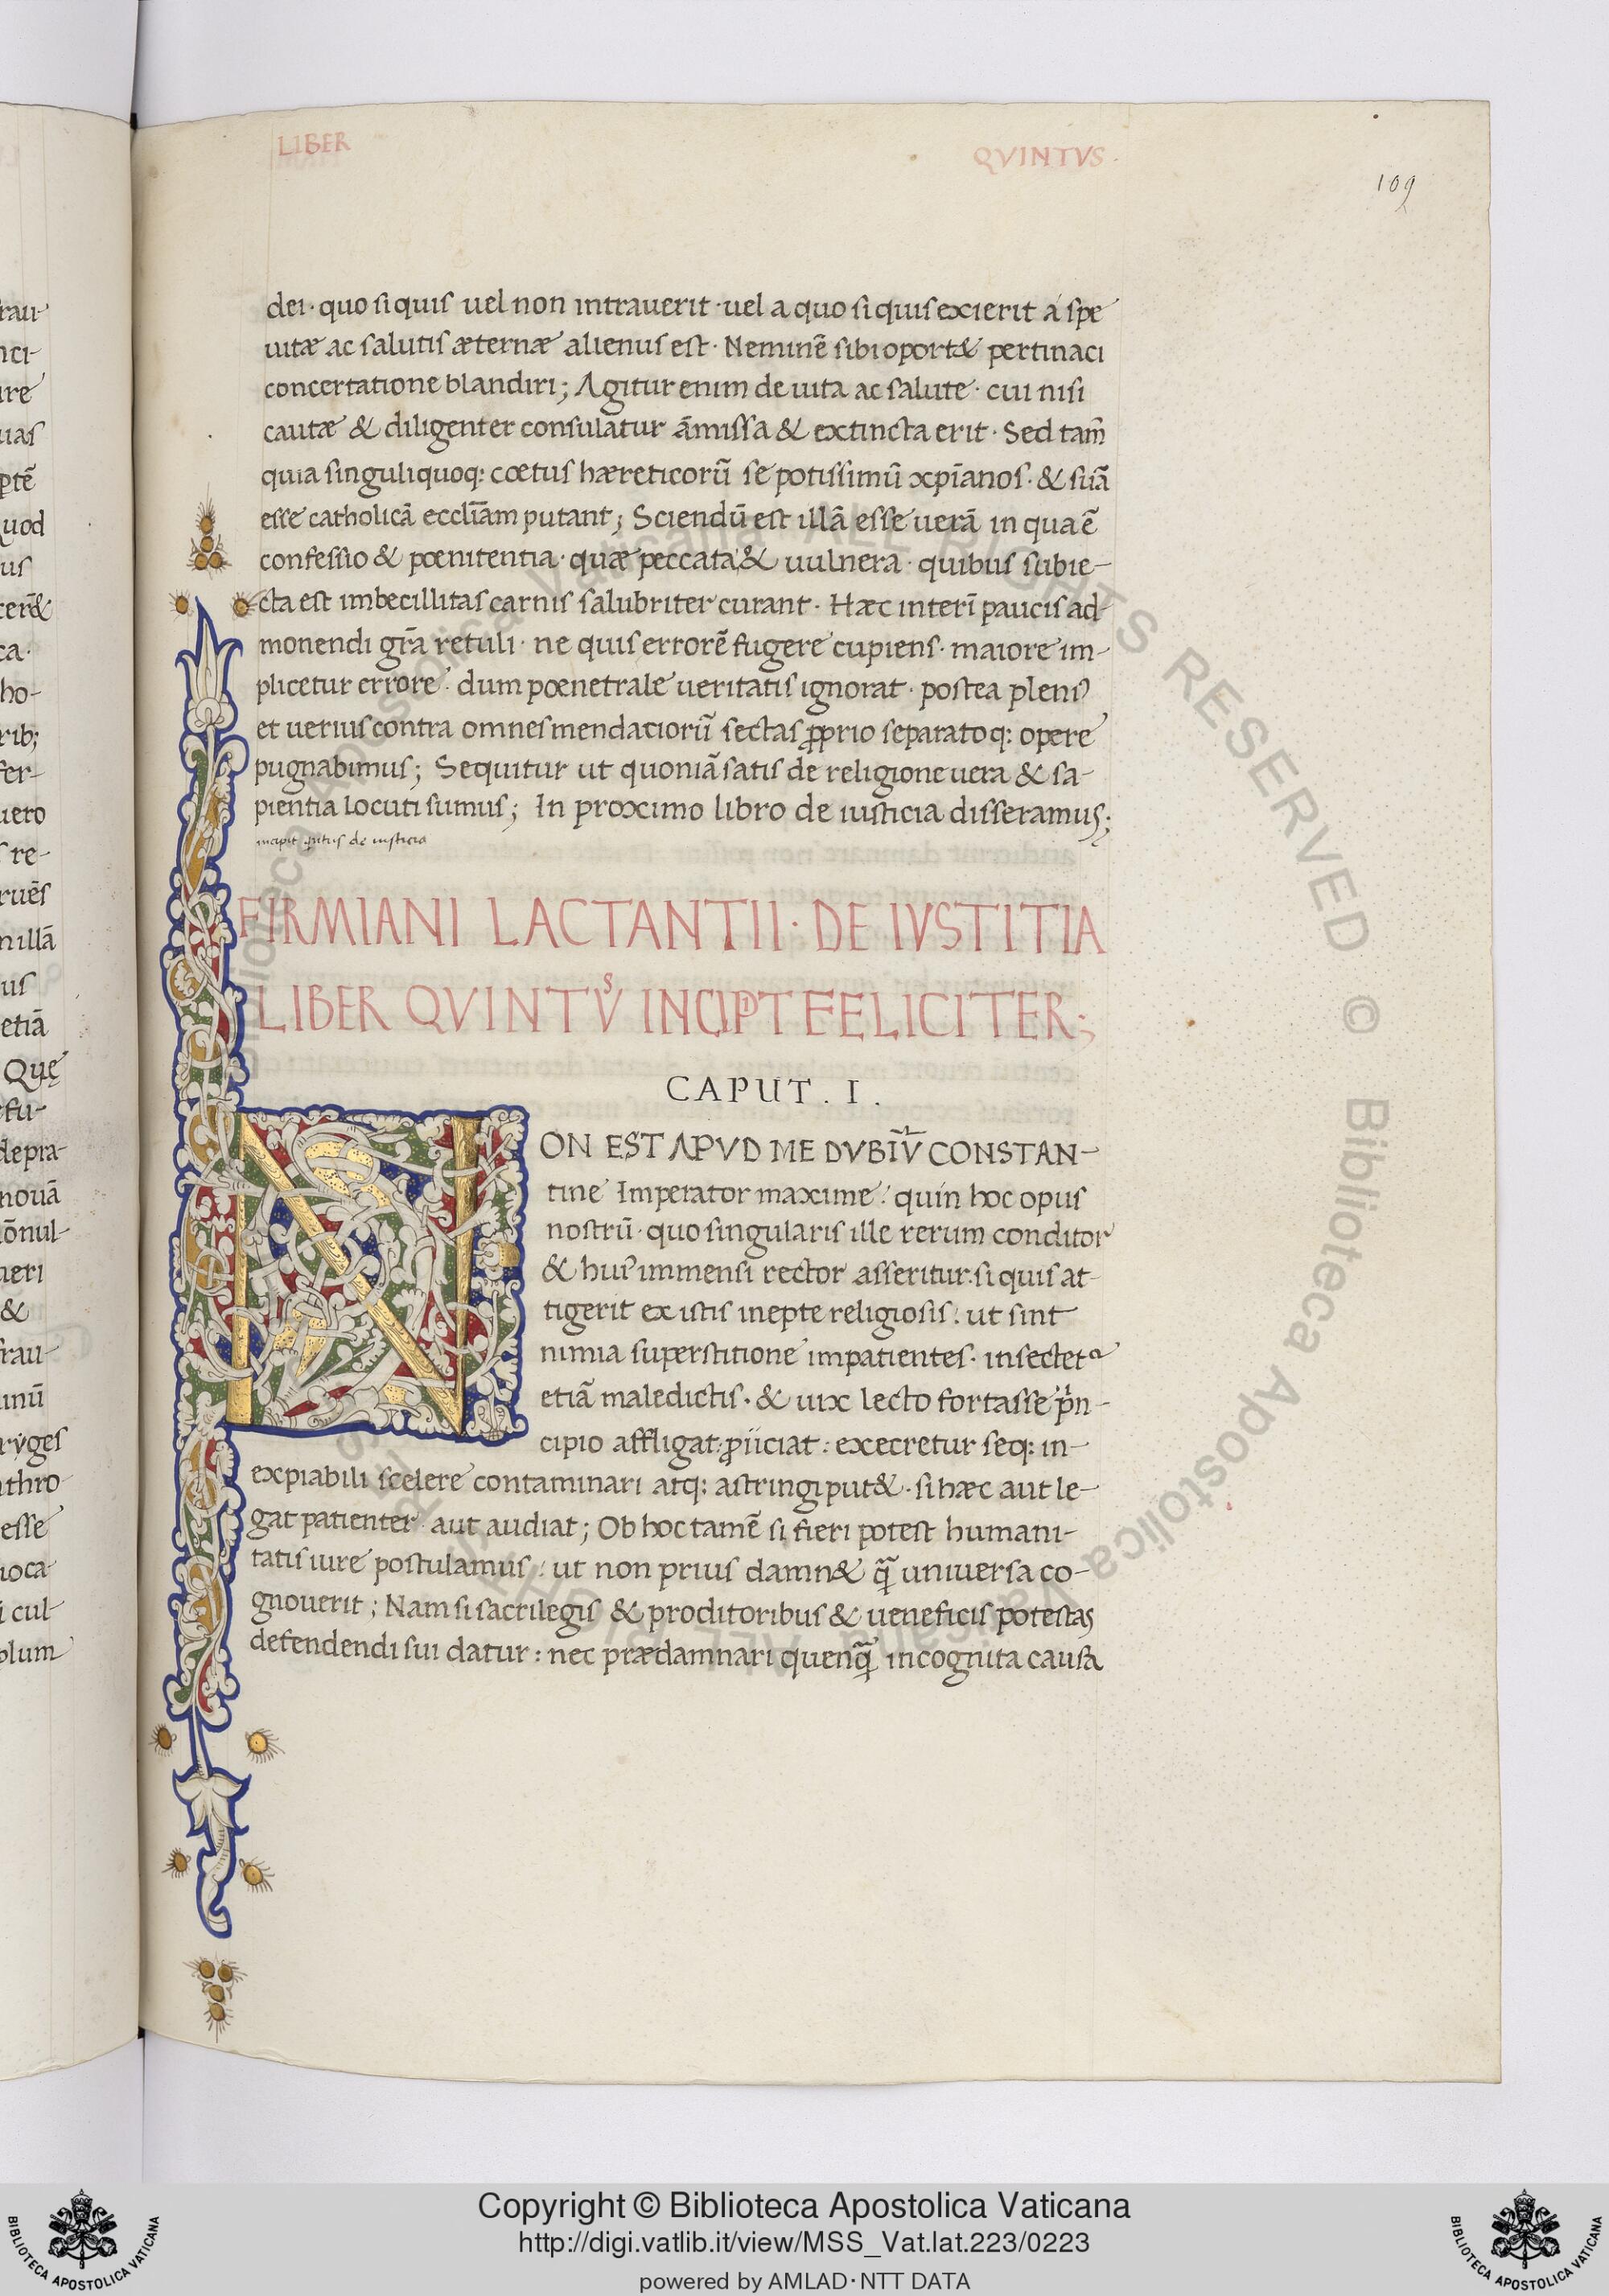 LIBER QVINTVS
109
dei· quo si quis uel non intrauerit ·uel a quo si quis exierit a spe
uitæ ac salutis æternæ alienus est· Neminē sibi oport& pertinaci
concertatione blandiri; Agitur enim de uita ac salute· cui nisi
cautæ & diligenter consulatur āmissa & extincta erit· Sed tam̄
quia singuli quoq: cœtus hæreticorū se potissimū xp̄ianos· & suā
esse catholicā eccl̄iam putant; Sciendū est illā esse uerā in qua ē
confessio & pœnitentia· quæ peccata & uulnera· quibus subie-
cta est imbecillitas carnis salubriter curant· Hæc interī paucis ad-
monendi gr̄a retuli· ne quis errorē fugere cupiens· maiore im-
plicetur errore· dum pœnetrale ueritatis ignorat· postea pleniꝰ
et uerius contra omnes mendaciorū sectas ꝓprio separatoq: opere
pugnabimus; Sequitur ut quoniā satis de religione uera & sa-
pientia locuti sumus; In proximo libro de iusticia disseramus;
incipit qintus de iusticia
FIRMIANI LACTANTII· DE IVSTITIA
LIBER QVINTVS INCIPIT FELICITER;
CAPUT . I .
NON EST APVD ME DVBIV̄ CONSTAN-
tine Imperator maxime: quin hoc opus
nostrū· quo singularis ille rerum conditor
& huiꝰ immensi rector asseritur· si quis at-
tigerit ex istis inepte religiosis: ut sint
nimia superstitione impatientes· insectet᷑
etiā maledictis· & uix lecto fortasse prin-
cipio affligat: ꝓiiciat: execretur seq: in-
expiabili scelere contaminari atq: astringi put&· si hæc aut le-
gat patienter aut audiat; Ob hoc tamē si fieri potest humani-
tatis iure postulamus: ut non prius damn& q̄ uniuersa co-
gnouerit; Nam si sacrilegis & proditoribus & ueneficis potestas
defendendi sui datur: nec prædamnari quenq̄ incognita causa
Copyright © Biblioteca Apostolica Vaticana
http://digi.vatlib.it/view/MSS_Vat.lat.223/0223
powered by AMLAD·NTT DATA
BIBLIOTECA APOSTOLICA VATICANA
BIBLIOTECA APOSTOLICA VATICANA